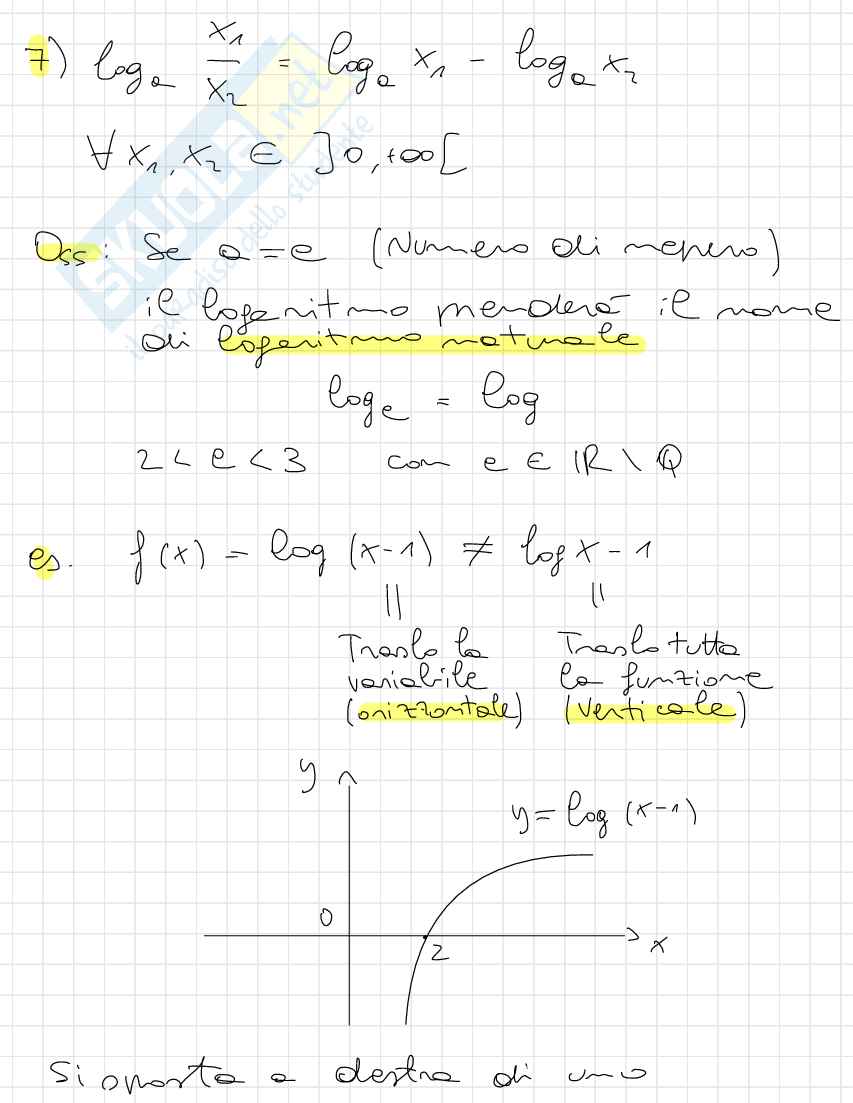 7) log_a x₁/x₂ = log_a x₁ - log_a x₂
∀ x₁, x₂ ∈ ]0, +∞[
Oss: Se a = e (Numero di nepero)
il logaritmo prenderà il nome
di logaritmo naturale
log_e = log
2 < e < 3 con e ∈ ℝ \ ℚ
es. f(x) = log (x-1) ≠ log x - 1
|| ||
Traslo la Traslo tutta
variabile la funzione
(orizzontale) (verticale)
y
y = log (x-1)
0
2
x
Si sposta a destra di uno
SKUOLA.net
il paradiso dello studente